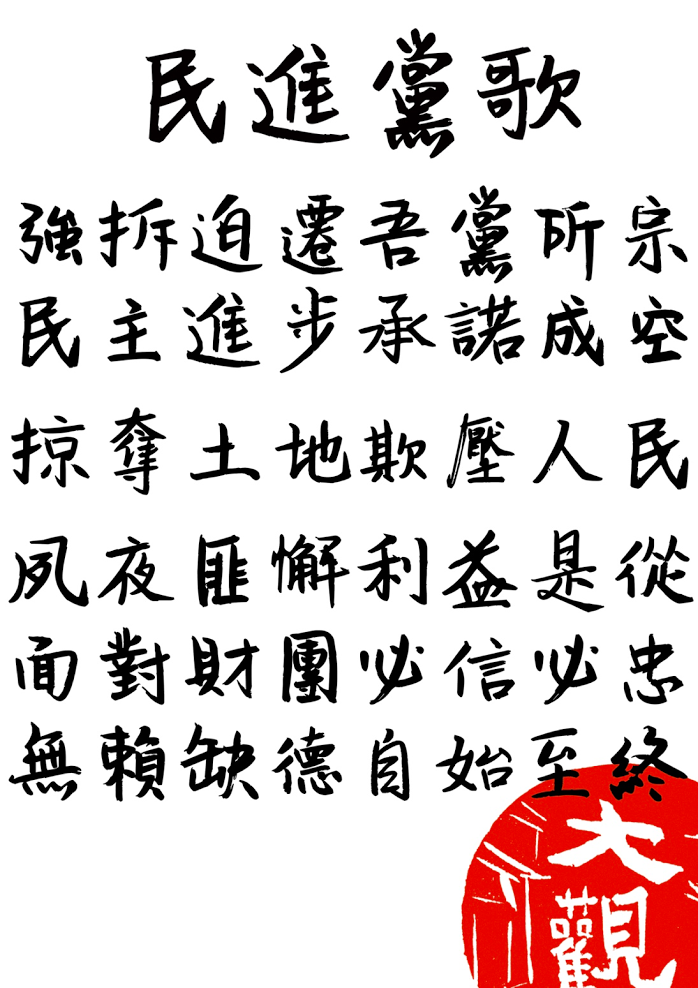 民進黨歌
強拆迫遷吾黨所宗
民主進步承諾成空
掠奪土地欺壓人民
夙夜匪懈利益是從
面對財團必信必忠
無賴缺德自始至終
大觀